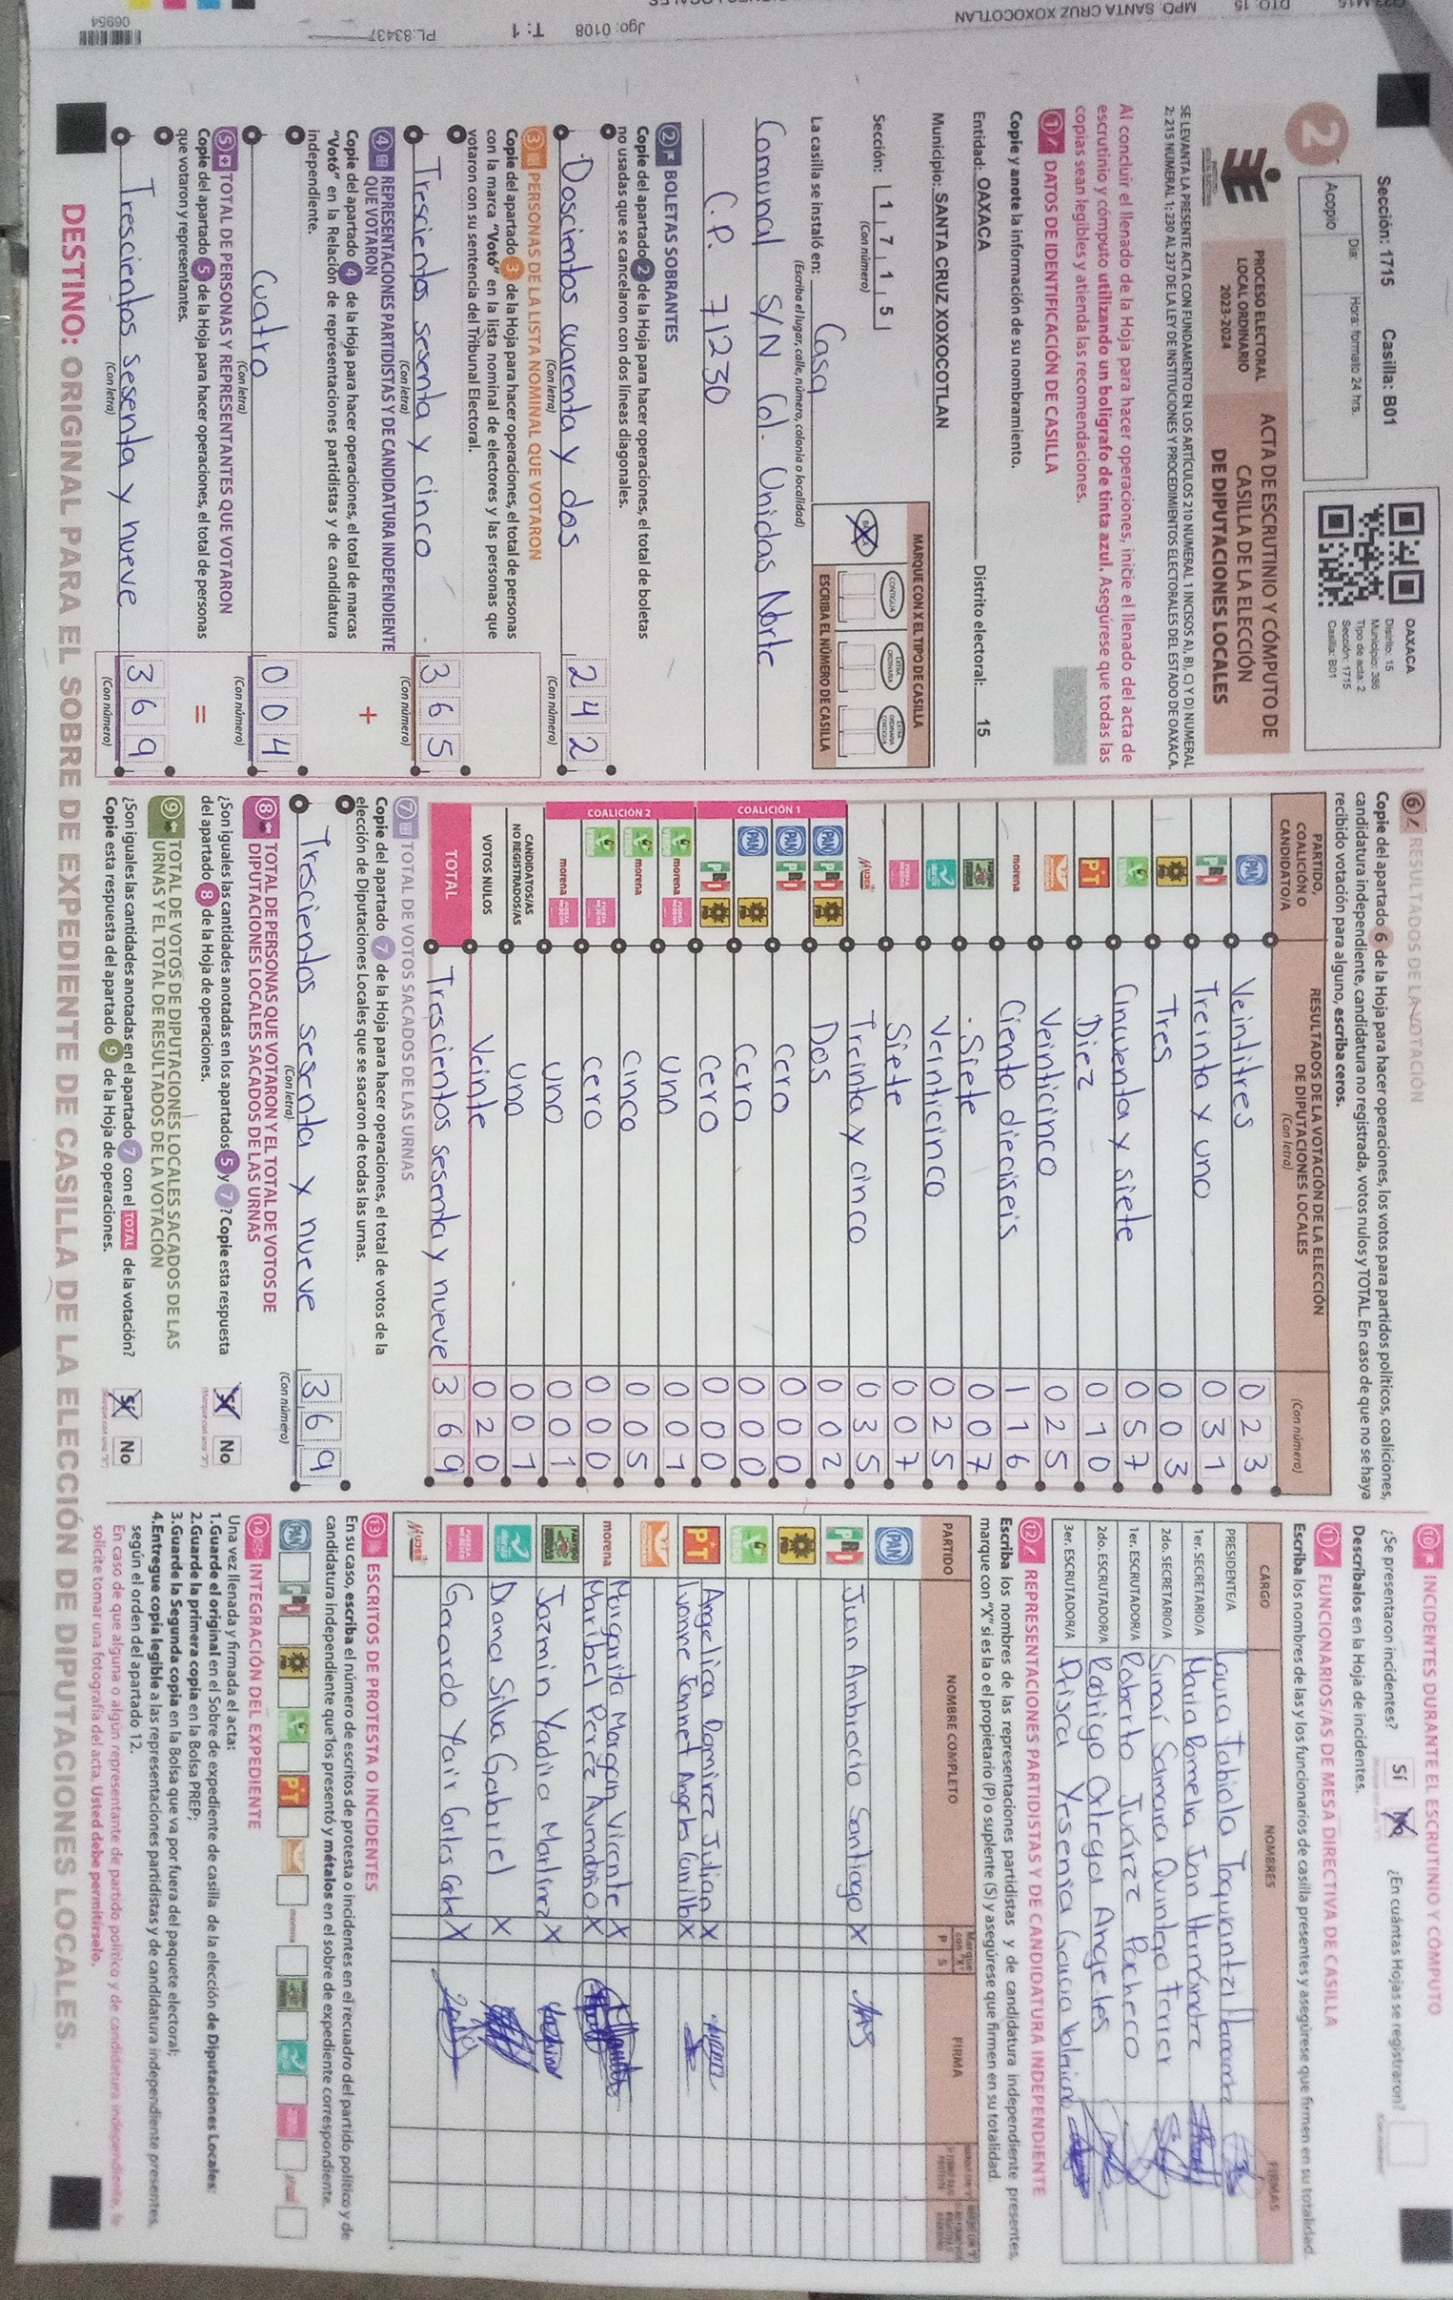 Sección: 1715 Casilla: B01
Día: Hora: formato 24 hrs.
Acopio
2
OAXACA
Distrito: 15
Municipio: 386
Tipo de acta: 2
Sección: 1715
Casilla: B01
PROCESO ELECTORAL
LOCAL ORDINARIO
2023-2024
ACTA DE ESCRUTINIO Y CÓMPUTO DE
CASILLA DE LA ELECCIÓN
DE DIPUTACIONES LOCALES
SE LEVANTA LA PRESENTE ACTA CON FUNDAMENTO EN LOS ARTÍCULOS 210 NUMERAL 1 INCISOS A), B), C) Y D) NUMERAL
2; 215 NUMERAL 1; 230 AL 237 DE LA LEY DE INSTITUCIONES Y PROCEDIMIENTOS ELECTORALES DEL ESTADO DE OAXACA.
Al concluir el llenado de la Hoja para hacer operaciones, inicie el llenado del acta de
escrutinio y cómputo utilizando un bolígrafo de tinta azul. Asegúrese que todas las
copias sean legibles y atienda las recomendaciones.
1 DATOS DE IDENTIFICACIÓN DE CASILLA
Copie y anote la información de su nombramiento.
Entidad: OAXACA Distrito electoral: 15
Municipio: SANTA CRUZ XOXOCOTLAN
Sección: 1 7 1 5
(Con número)
MARQUE CON X EL TIPO DE CASILLA
ESCRIBA EL NÚMERO DE CASILLA
La casilla se instaló en: Casa
(Escriba el lugar, calle, número, colonia o localidad)
Comunal S/N Col. Unidas Norte
C.P. 71230
2 BOLETAS SOBRANTES
Copie del apartado 2 de la Hoja para hacer operaciones, el total de boletas
no usadas que se cancelaron con dos líneas diagonales.
Doscientos cuarenta y dos 2 4 2
(Con letra) (Con número)
3 PERSONAS DE LA LISTA NOMINAL QUE VOTARON
Copie del apartado 3 de la Hoja para hacer operaciones, el total de personas
con la marca "Votó" en la lista nominal de electores y las personas que
votaron con su sentencia del Tribunal Electoral.
Trescientos sesenta y cinco 3 6 5
(Con letra) (Con número)
4 REPRESENTACIONES PARTIDISTAS Y DE CANDIDATURA INDEPENDIENTE
QUE VOTARON
Copie del apartado 4 de la Hoja para hacer operaciones, el total de marcas
"Votó" en la Relación de representaciones partidistas y de candidatura
independiente.
+
Cuatro 0 0 4
(Con letra) (Con número)
5 TOTAL DE PERSONAS Y REPRESENTANTES QUE VOTARON
Copie del apartado 5 de la Hoja para hacer operaciones, el total de personas
que votaron y representantes.
=
Trescientos sesenta y nueve 3 6 9
(Con letra) (Con número)
6 RESULTADOS DE LA VOTACIÓN
Copie del apartado 6 de la Hoja para hacer operaciones, los votos para partidos políticos, coaliciones,
candidatura independiente, candidatura no registrada, votos nulos y TOTAL. En caso de que no se haya
recibido votación para alguno, escriba ceros.
PARTIDO, COALICIÓN O CANDIDATO/A
RESULTADOS DE LA VOTACIÓN DE LA ELECCIÓN
DE DIPUTACIONES LOCALES
(Con letra) (Con número)
PAN Veintitres 0 2 3
PRI Treinta y uno 0 3 1
PRD Tres 0 0 3
VERDE Cincuenta y siete 0 5 7
PT Diez 0 1 0
Veinticinco 0 2 5
morena Ciento dieciseis 1 1 6
Siete 0 0 7
Veinticinco 0 2 5
Siete 0 0 7
MUJER Treinta y cinco 0 3 5
COALICIÓN 1
PAN PRI PRD Dos 0 0 2
PAN PRI Cero 0 0 0
PAN PRD Cero 0 0 0
PRI PRD Cero 0 0 0
COALICIÓN 2
VERDE morena Uno 0 0 1
VERDE morena Cinco 0 0 5
VERDE Cero 0 0 0
morena Uno 0 0 1
CANDIDATOS/AS
NO REGISTRADOS/AS Uno 0 0 1
VOTOS NULOS Veinte 0 2 0
TOTAL Trescientos sesenta y nueve 3 6 9
7 TOTAL DE VOTOS SACADOS DE LAS URNAS
Copie del apartado 7 de la Hoja para hacer operaciones, el total de votos de la
elección de Diputaciones Locales que se sacaron de todas las urnas.
Trescientos sesenta y nueve 3 6 9
(Con letra) (Con número)
8 TOTAL DE PERSONAS QUE VOTARON Y EL TOTAL DE VOTOS DE
DIPUTACIONES LOCALES SACADOS DE LAS URNAS
¿Son iguales las cantidades anotadas en los apartados 5 y 7? Copie esta respuesta
del apartado 8 de la Hoja de operaciones.
Sí No
9 TOTAL DE VOTOS DE DIPUTACIONES LOCALES SACADOS DE LAS
URNAS Y EL TOTAL DE RESULTADOS DE LA VOTACIÓN
¿Son iguales las cantidades anotadas en el apartado 7 con el TOTAL de la votación?
Copie esta respuesta del apartado 9 de la Hoja de operaciones.
Sí No
10 INCIDENTES DURANTE EL ESCRUTINIO Y CÓMPUTO
¿Se presentaron incidentes? Sí No ¿En cuántas Hojas se registraron?
Descríbalos en la Hoja de incidentes.
11 FUNCIONARIOS/AS DE MESA DIRECTIVA DE CASILLA
Escriba los nombres de las y los funcionarios de casilla presentes y asegúrese que firmen en su totalidad.
CARGO NOMBRES FIRMAS
PRESIDENTE/A Laura Fabiola
1er. SECRETARIO/A Maria Pamela Jan Hernández
2do. SECRETARIO/A Sinaí Samara Quintero Ferrer
1er. ESCRUTADOR/A Roberto Juárez Pacheco
2do. ESCRUTADOR/A Rodrigo Ortega Angeles
3er. ESCRUTADOR/A Prisca Yesenia Garcia
12 REPRESENTACIONES PARTIDISTAS Y DE CANDIDATURA INDEPENDIENTE
Escriba los nombres de las representaciones partidistas y de candidatura independiente presentes,
marque con "X" si es la o el propietario (P) o suplente (S) y asegúrese que firmen en su totalidad.
PARTIDO NOMBRE COMPLETO P S FIRMA
PAN
PRI Juan Ambrocio Santiago X
PRD
VERDE
PT Angelica Ramirez Julian X
Ivonne Jannet Angeles X
morena Margarita Morgan Vicente X
Maribel Perez Avendaño X
Jazmin Yadira Martinez X
Diana Silva Gabriel X
Gerardo Yair X
MUJER
13 ESCRITOS DE PROTESTA O INCIDENTES
En su caso, escriba el número de escritos de protesta o incidentes en el recuadro del partido político y de
candidatura independiente que los presentó y métalos en el sobre de expediente correspondiente.
PAN PRI PRD VERDE PT morena
14 INTEGRACIÓN DEL EXPEDIENTE
Una vez llenada y firmada el acta:
1.Guarde el original en el Sobre de expediente de casilla de la elección de Diputaciones Locales;
2.Guarde la primera copia en la Bolsa PREP;
3.Guarde la Segunda copia en la Bolsa que va por fuera del paquete electoral;
4.Entregue copia legible a las representaciones partidistas y de candidatura independiente presentes,
según el orden del apartado 12.
En caso de que alguna o algún representante de partido político y de candidatura independiente, le
solicite tomar una fotografía del acta. Usted debe permitírselo.
DESTINO: ORIGINAL PARA EL SOBRE DE EXPEDIENTE DE CASILLA DE LA ELECCIÓN DE DIPUTACIONES LOCALES.
DTO: 15 MPO: SANTA CRUZ XOXOCOTLAN
Jgo: 0108 T: 1 PL: 83437
06954